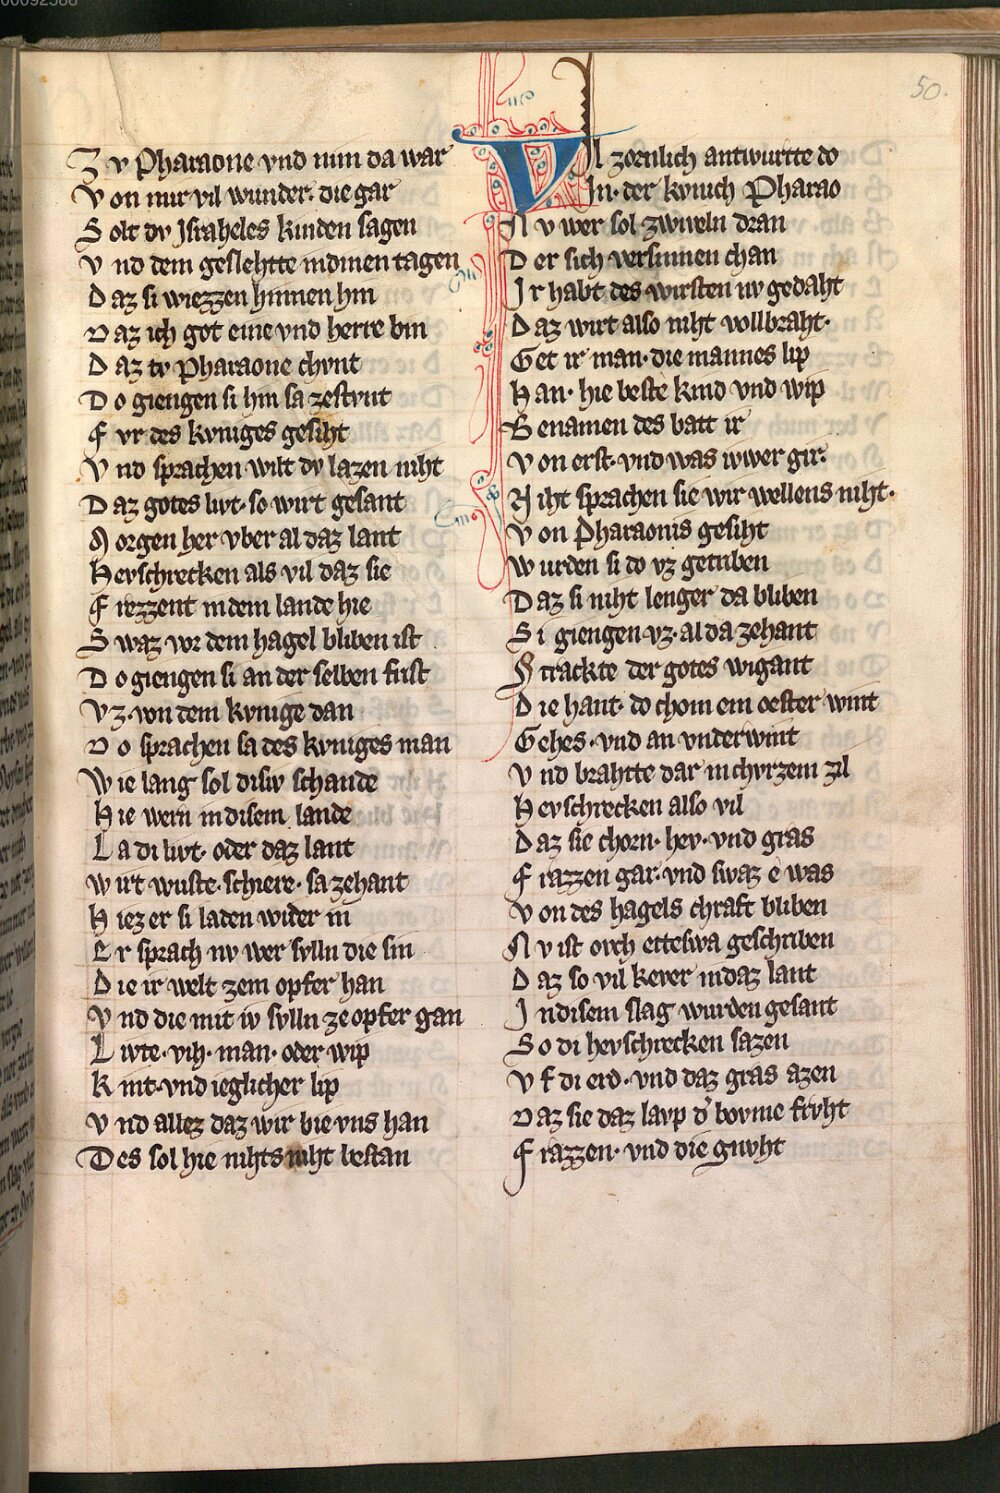 50.
Z v Pharaone vnd nim da war
V on mir vil wunder. die gar
S olt dv Jsraheles kinden sagen
V nd dem geslehtte in dinen tagen
D az si wizzen hinnen hin
D az ich got eine vnd herre bin
D az tv Pharaone chvnt
D o giengen si hin sa zestvnt
F vr des kvniges gesiht
V nd sprachen wilt dv lazen niht
D az gotes livt. so wirt gesant
M orgen her vber al daz lant
H evschrecken als vil daz sie
F rezzent in dem lande hie
S waz vor dem hagel bliben ist
D o giengen si an der selben frist
V z. von dem kvnige dan
D o sprachen sa des kvniges man
W ie lang sol disiv schande
H ie wern in disem lande
L a di livt. oder daz lant
W irt wuste. schiere. sa zehant
H iez er si laden wider in
E r sprach nv wer svlln die sin
D ie ir welt zem opfer han
V nd die mit iv svlln ze opfer gan
L ivte. vih. man. oder wip
K int. vnd ieglicher lip
V nd allez daz wir bie vns han
D es sol hie nihts niht bestan
V Il zornlich antwurtte do
In. der kvnich Pharao
N v wer sol zwiveln dran
D er sich versinnen chan
J r habt des wirsten nv gedaht
D az wirt also niht vollbraht.
G et ir man. die mannes lip
H an. hie beste kind vnd wip
B enamen des batt ir
V on erst. vnd was iwer gir.
N iht sprachen sie wir wellens niht.
V on Pharaonis gesiht
W urden si do vz getriben
D az si niht lenger da bliben
S i giengen vz. al da zehant
S trackte der gotes wigant
D ie hant. do chom ein oester wint
G ehes. vnd an vnderwint
V nd brahtte dar in chvrzem zil
H evschrecken also vil
D az sie chorn. hev. vnd gras
F razzen gar. vnd swaz e was
V on des hagels chraft bliben
N v ist ovch etteswa geschriben
D az so vil kever in daz lant
J n disem slag wurden gesant
S o di hevschrecken sazen
V f di erd. vnd daz gras azen
D az sie daz lavp d' bovme frvht
F razzen. vnd die gnvht